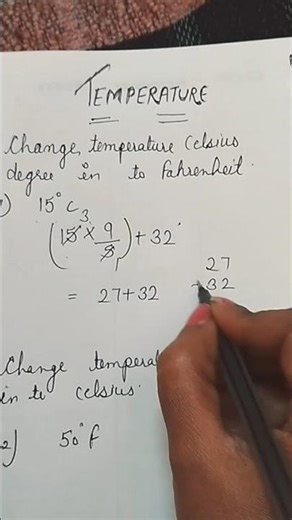 TEMPERATURE
Change temperature Celsius
degree in to Fahrenheit.
15°C
(15 × 9/5) + 32°
= 27+32
27
+32
Change
in to Celsius.
2) 50°f